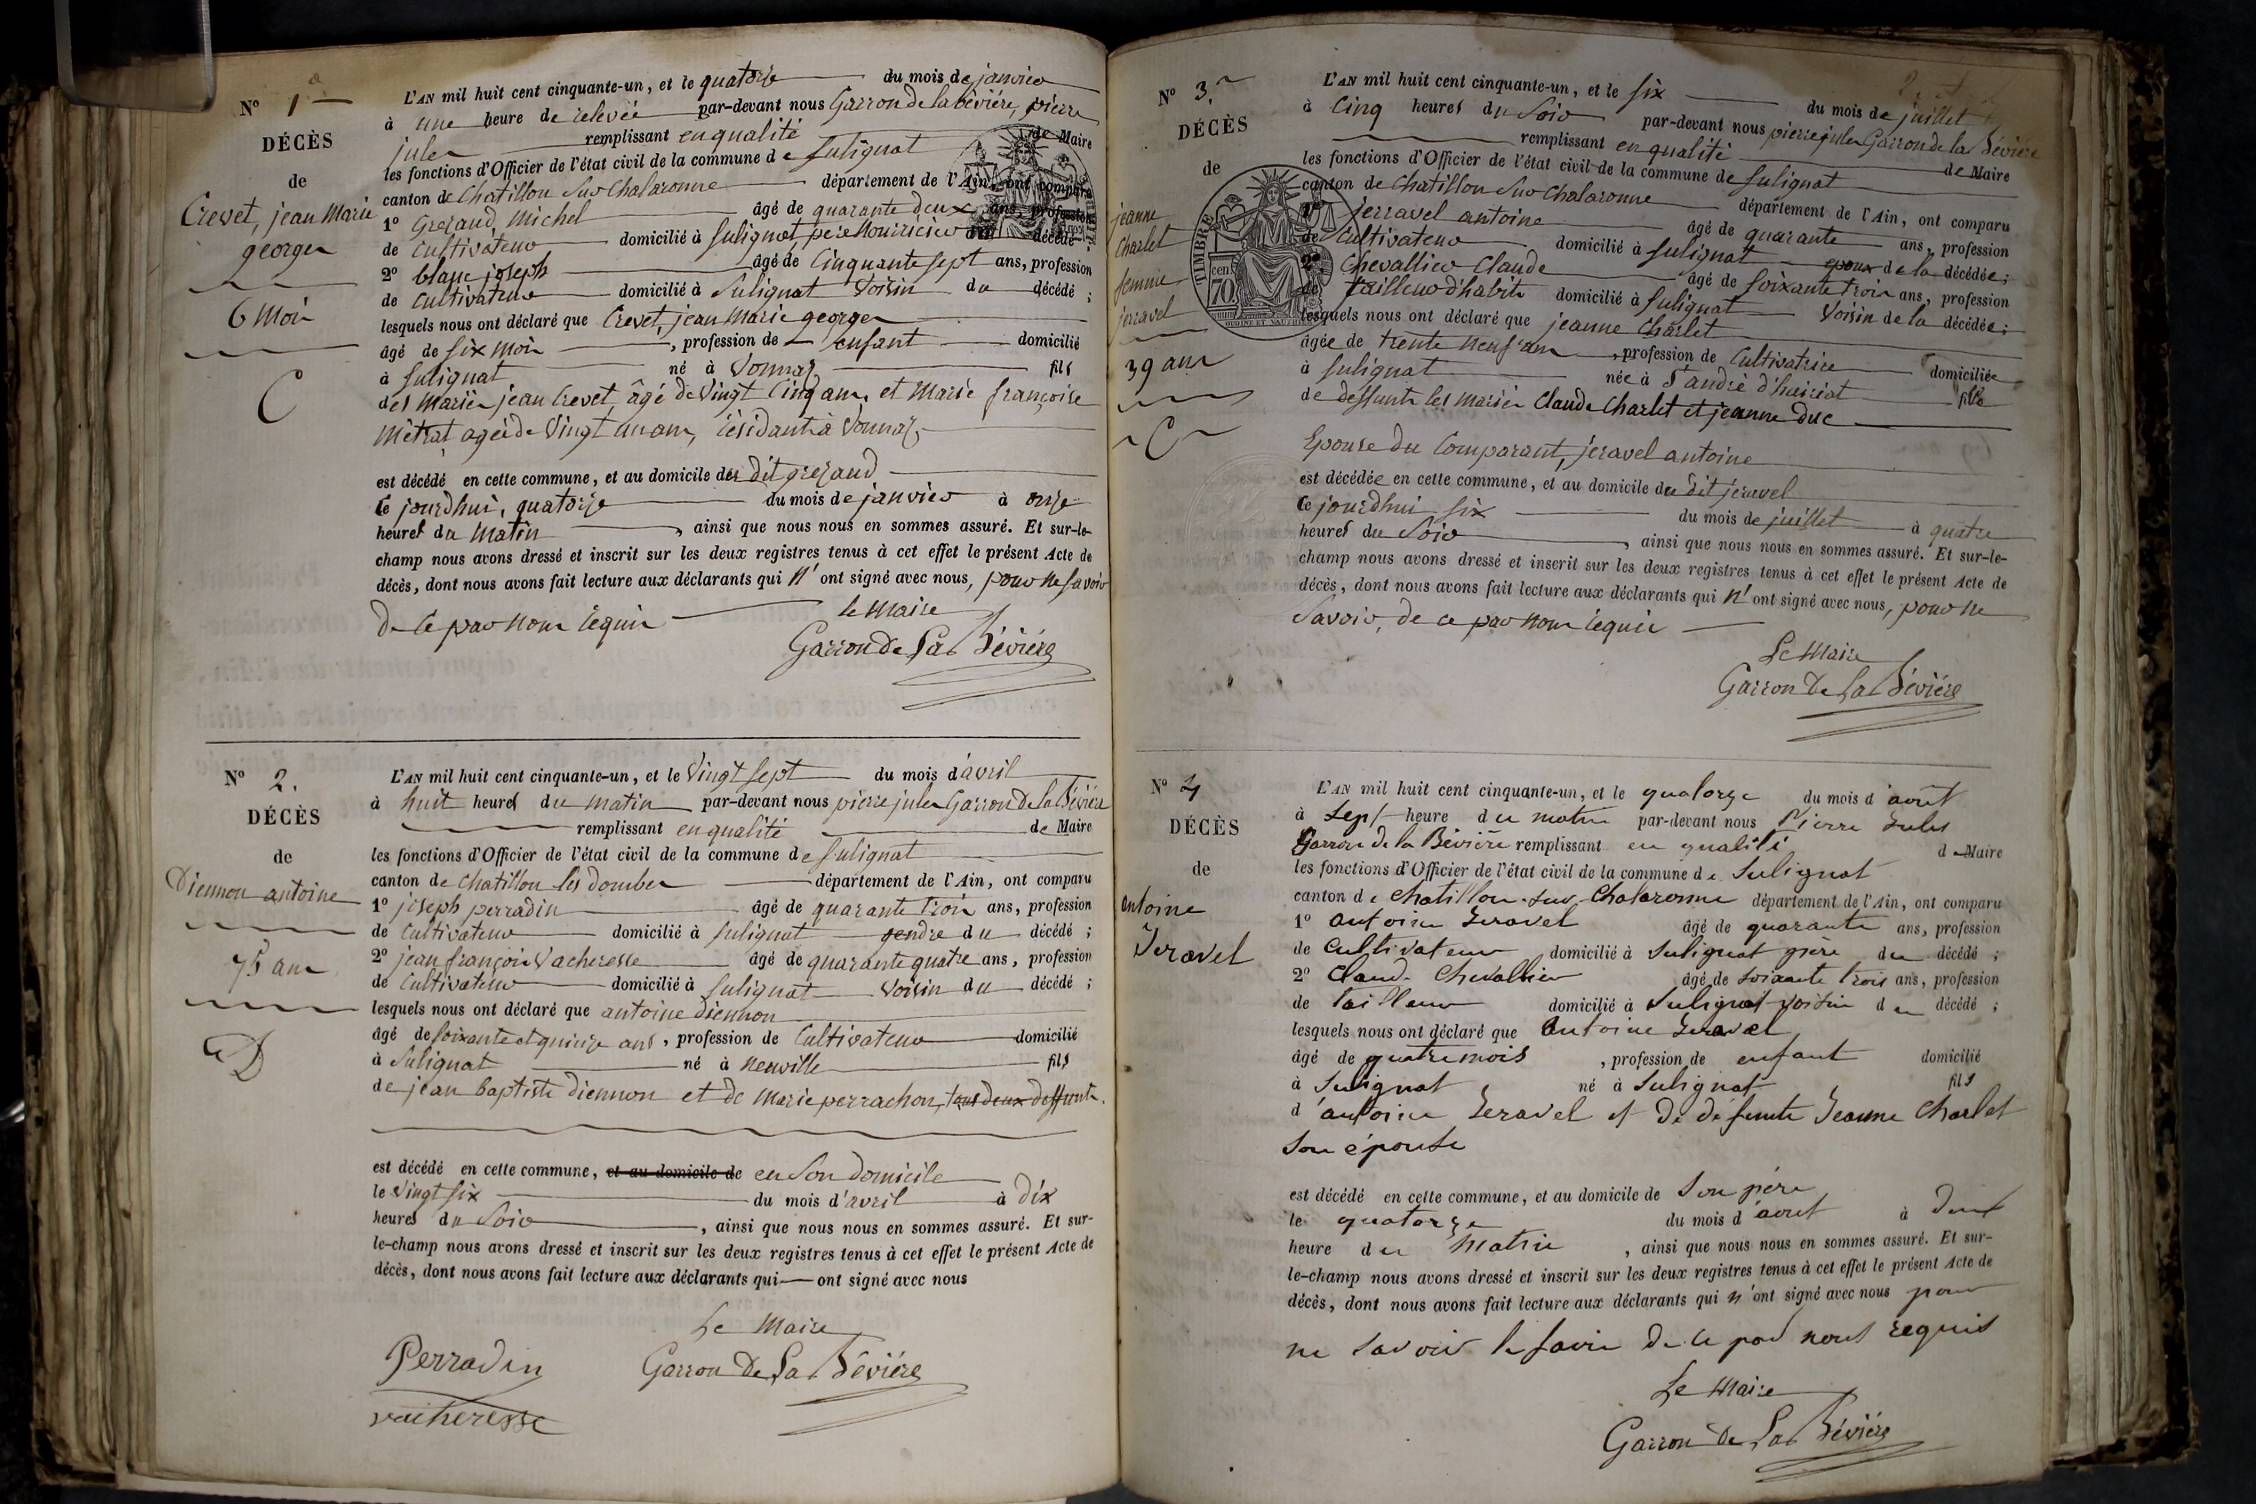 N° 1
DÉCÈS
de
Crevet, jean Marie
georges
6 mois
C
L'AN mil huit cent cinquante-un, et le quatorze du mois de janvier
à une heure de relevée par-devant nous Garron de la bévière, pierre
jules remplissant en qualité de Maire
les fonctions d'Officier de l'état civil de la commune de Sulignat
canton de Chatillon sur Chalaronne département de l'Ain, ont comparu
1° Grezaud, Michel âgé de quarante deux ans, profession
de Cultivateur domicilié à Sulignat, pere Nourricier du décédé ;
2° blanc joseph âgé de Cinquante sept ans, profession
de Cultivateur domicilié à Sulignat Voisin du décédé ;
lesquels nous ont déclaré que Crevet, jean Marie georges
âgé de Six mois , profession de enfant domicilié
à Sulignat né à Vonnaz fils
des mariés jean Crevet, âgé de Vingt Cinq ans, et Marie françoise
Métrat agée de Vingt un ans, résidant à Vonnaz,
est décédé en cette commune, et au domicile du dit grezaud
ce jourdhui, quatorze du mois de janvier à onze
heures du Matin , ainsi que nous nous en sommes assuré. Et sur-le-
champ nous avons dressé et inscrit sur les deux registres tenus à cet effet le présent Acte de
décès, dont nous avons fait lecture aux déclarants qui n' ont signé avec nous, pour ne Savoir
de ce par nous requis
le Maire
Garron de La Bévière
N° 2.
DÉCÈS
de
Diennon antoine
75 ans
D
L'AN mil huit cent cinquante-un, et le Vingt Sept du mois d'avril
à huit heures du matin par-devant nous pierre jules Garron de la Bévière
remplissant en qualité de Maire
les fonctions d'Officier de l'état civil de la commune de Sulignat
canton de Chatillon les dombes département de l'Ain, ont comparu
1° joseph perradin âgé de quarante trois ans, profession
de Cultivateur domicilié à Sulignat gendre du décédé ;
2° jean françois Vacheresse âgé de quarante quatre ans, profession
de Cultivateur domicilié à Sulignat Voisin du décédé ;
lesquels nous ont déclaré que antoine diennon
âgé de soixante et quinze ans , profession de Cultivateur domicilié
à Sulignat né à neuville fils
de jean baptiste diennon et de Marie perrachon, tous deux deffunts.
est décédé en cette commune, et au domicile de en Son domicile
le Vingt Six du mois d'avril à dix
heures du Soir , ainsi que nous nous en sommes assuré. Et sur-
le-champ nous avons dressé et inscrit sur les deux registres tenus à cet effet le présent Acte de
décès, dont nous avons fait lecture aux déclarants qui ont signé avec nous
Le Maire
Perradin
Garron De La Bévière
vacheresse
N° 3.
DÉCÈS
de
jeanne
Charlet
femme
jerravel
39 ans
C
TIMBRE
cen 70
L'AN mil huit cent cinquante-un, et le six du mois de juillet
à Cinq heures du Soir par-devant nous pierre jules Garron de la Bévière
remplissant en qualité de Maire
les fonctions d'Officier de l'état civil de la commune de Sulignat
canton de Chatillon Sur Chalaronne département de l'Ain, ont comparu
1° jerravel antoine âgé de quarante ans, profession
de Cultivateur domicilié à Sulignat epoux de la décédée ;
2° Chevallier Claude âgé de Soixante trois ans, profession
de tailleur d'habits domicilié à Sulignat Voisin de la décédée ;
lesquels nous ont déclaré que jeanne Charlet
âgée de trente neuf ans , profession de Cultivatrice domiciliée
à Sulignat née à St andré d'huiriat fille
de deffunts les mariés Claude Charlet et jeanne duc
Epouse du Comparant, jeravel antoine
est décédée en cette commune, et au domicile du dit jeravel
Ce jourdhui six du mois de juillet à quatre
heures du Soir , ainsi que nous nous en sommes assuré. Et sur-le-
champ nous avons dressé et inscrit sur les deux registres tenus à cet effet le présent Acte de
décès, dont nous avons fait lecture aux déclarants qui n' ont signé avec nous, pour ne
Savoir, de ce par nous requis
Le Maire
Garron De La Bévière
N° 4
DÉCÈS
de
antoine
Jeravel
L'AN mil huit cent cinquante-un, et le quatorze du mois d'août
à Sept heure du matin par-devant nous Pierre Jules
Garron de la Bévière remplissant en qualité de Maire
les fonctions d'Officier de l'état civil de la commune de Sulignat
canton de Chatillon-sur-Chalaronne département de l'Ain, ont comparu
1° antoine Jeravel âgé de quarante ans, profession
de Cultivateur domicilié à Sulignat père du décédé ;
2° Claude Chevallier âgé de soixante trois ans, profession
de Tailleur domicilié à Sulignat voisin du décédé ;
lesquels nous ont déclaré que Antoine Jeravel
âgé de quatre mois , profession de enfant domicilié
à Sulignat né à Sulignat fils
d'antoine Jeravel et de défunte Jeanne Charlet
son épouse
est décédé en cette commune, et au domicile de Son père
le quatorze du mois d'aout à deux
heure du Matin , ainsi que nous nous en sommes assuré. Et sur-
le-champ nous avons dressé et inscrit sur les deux registres tenus à cet effet le présent Acte de
décès, dont nous avons fait lecture aux déclarants qui n'ont signé avec nous pour
ne savoir le faire de ce par nous requis
Le Maire
Garron De La Bévière